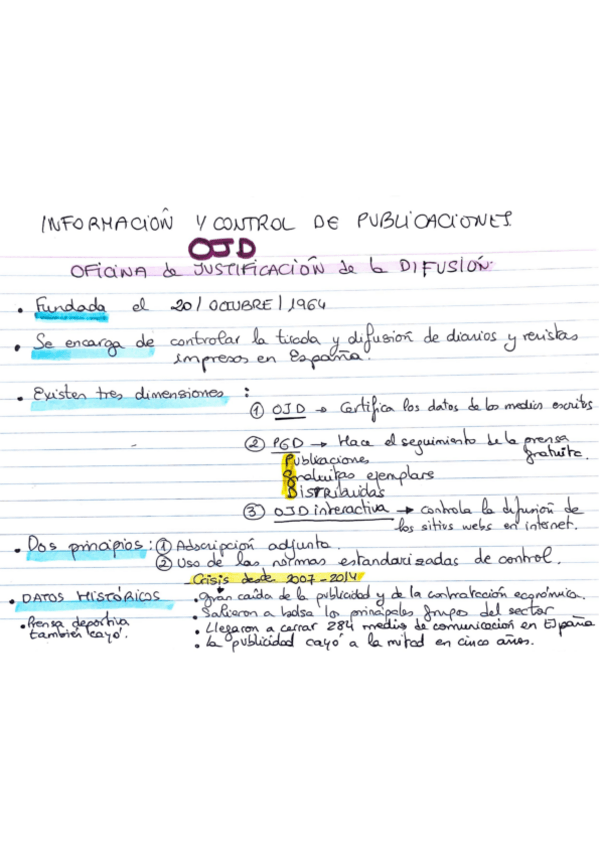 INFORMACIÓN Y CONTROL DE PUBLICACIONES
OJD
OFICINA de JUSTIFICACIÓN de la DIFUSIÓN.
• Fundada el 20/OCTUBRE/1964
• Se encarga de controlar la tirada y difusión de diarios y revistas
impresos en España.
• Existen tres dimensiones :
① OJD → Certifica los datos de los medios escritos
② PGD → Hace el seguimiento de la prensa
gratuita.
Publicaciones
gratuitas ejemplares
DISTRIBUIDAS
③ OJD interactiva → controla la difusión de
los sitios webs en internet.
• Dos principios : ① Adscripción adjunta.
② Uso de las normas estandarizadas de control.
Crisis desde 2007-2014
• DATOS HISTÓRICOS • Gran caída de la publicidad y de la contratación económica.
• Salieron a bolsa los principales grupos del sector
• Prensa deportiva • Llegaron a cerrar 284 medios de comunicación en España
también cayó. • la publicidad cayó a la mitad en cinco años.